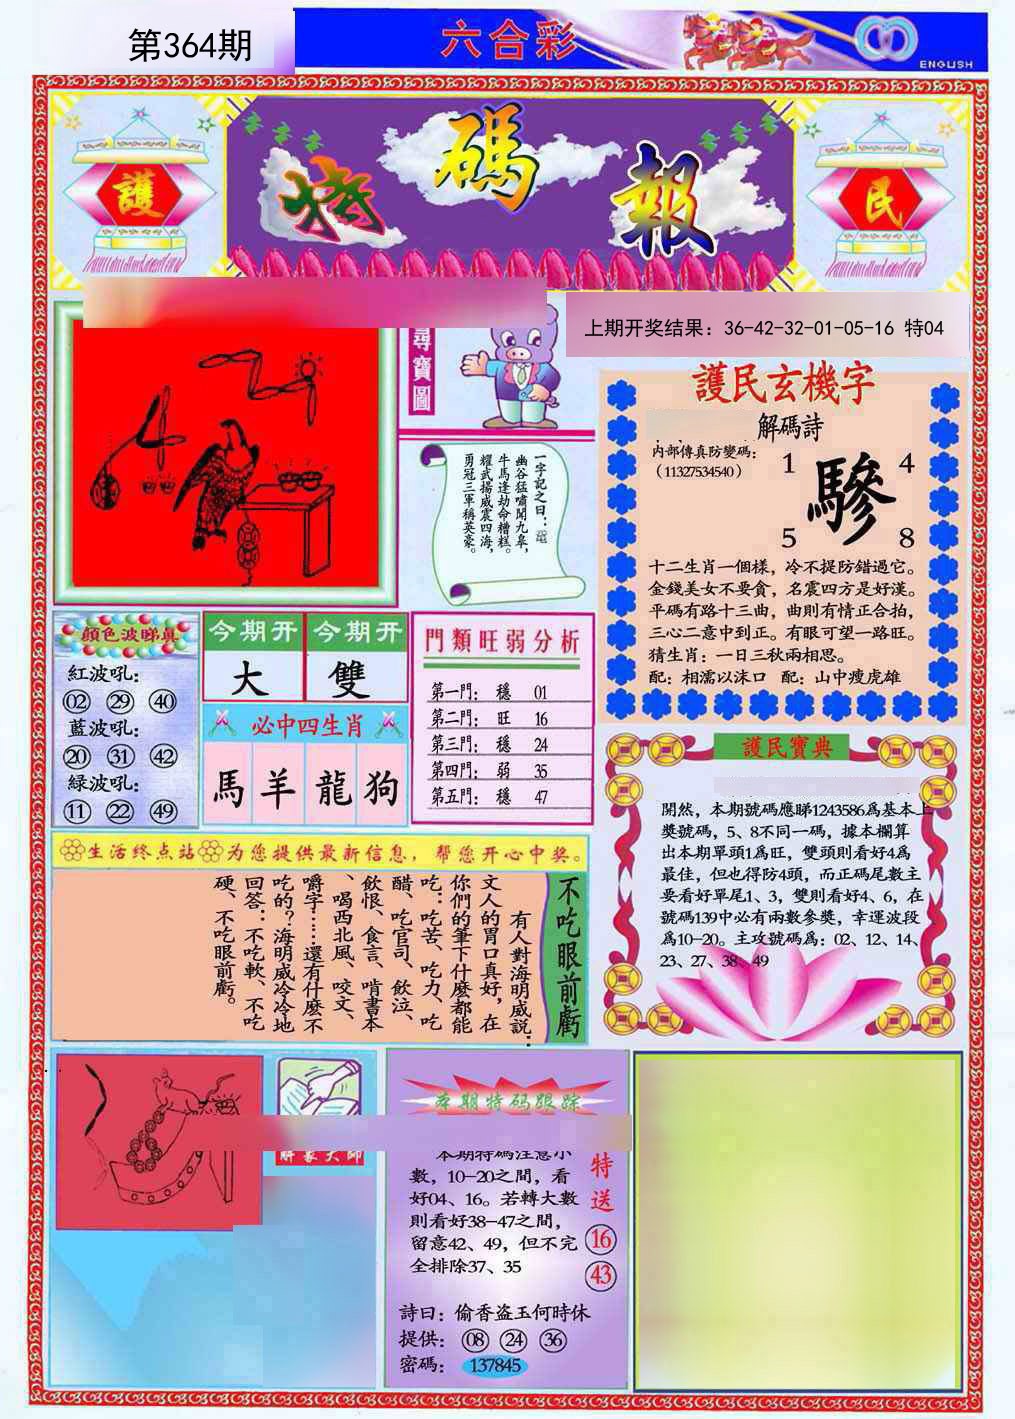 第364期
六合彩
ENGLISH
護
特碼報
民
上期开奖结果：36-42-32-01-05-16 特04
尋寶圖
一字記之曰：
幽谷猛嘯聞九皋，
牛馬逢劫命糟糕。
耀武揚威震四海，
勇冠三軍稱英豪。
護民玄機字
解碼詩
内部傳真防變碼：
（11327534540）
1 4
驂
5 8
十二生肖一個樣，冷不提防錯過它。
金錢美女不要貪，名震四方是好漢。
平碼有路十三曲，曲則有情正合拍，
三心二意中到正。有眼可望一路旺。
猜生肖：一日三秋兩相思。
配：相濡以沫口 配：山中瘦虎雄
顔色波睇真
紅波吼：
02 29 40
藍波吼：
20 31 42
緑波吼：
11 22 49
今期开 今期开
大 雙
必中四生肖
馬 羊 龍 狗
門類旺弱分析
第一門： 穩 01
第二門： 旺 16
第三門： 穩 24
第四門： 弱 35
第五門： 穩 47
護民寶典
開然，本期號碼應睇1243586爲基本上
獎號碼，5、8不同一碼，據本欄算
出本期單頭1爲旺，雙頭則看好4爲
最佳，但也得防4頭，而正碼尾數主
要看好單尾1、3，雙則看好4、6，在
號碼139中必有兩數參獎，幸運波段
爲10-20。主攻號碼爲：02、12、14、
23、27、38、49
生活终点站 为您提供最新信息，帮您开心中奖。
不吃眼前虧
有人對海明威説：
文人的胃口真好，在
你們的筆下什麽都能
吃：吃苦、吃力、吃
醋、吃官司、飲泣、
飲恨、食言、啃書本
、喝西北風、咬文、
嚼字……還有什麽不
吃的？海明威冷冷地
回答：不吃軟、不吃
硬、不吃眼前虧。
解家大師
本期特码跟踪
本期特碼注意小
數，10-20之間，看
好04、16。若轉大數
則看好38-47之間，
留意42、49，但不完
全排除37、35
特送
16
43
詩曰：偷香盗玉何時休
提供： 08 24 36
密碼： 137845